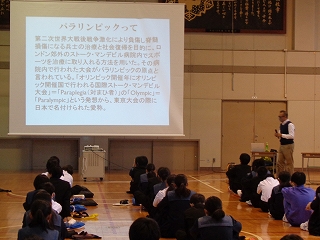 パラリンピックって
第二次世界大戦後戦争激化により負傷し脊髄
損傷になる兵士の治療と社会復帰を目的に、ロ
ンドン郊外のストーク・マンデビル病院内でスポー
ツを治療に取り入れる方法を用いた。その病
院内で行われた大会がパラリンピックの原点と
言われている。「オリンピック開催年にオリンピ
ック開催国で行われる国際ストーク・マンデビル
大会」＝「Paraplegia（対まひ者）」の「Olympic」＝
「Paralympic」という発想から、東京大会の際に
日本で名付けられた愛称。